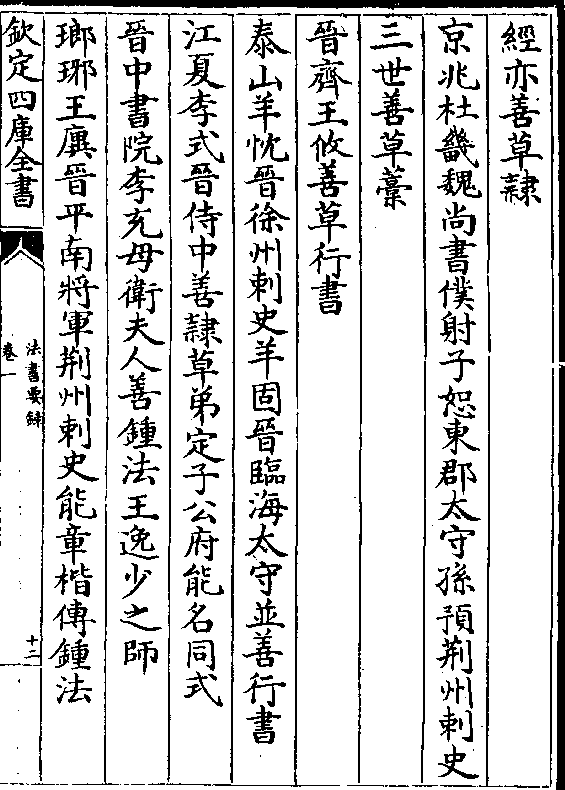 經亦善草隸
京兆杜畿魏尚書僕射子恕東郡太守孫預荆州刺史
三世善草藁
晉齊王攸善草行書
泰山羊忱晉徐州刺史羊固晉臨海太守並善行書
江夏李式晉侍中善隸草弟定子公府能名同式
晉中書院李充母衛夫人善鍾法王逸少之師
瑯琊王廙晉平南將軍荆州刺史能章楷傳鍾法
欽定四庫全書
法書要録
卷一
十二